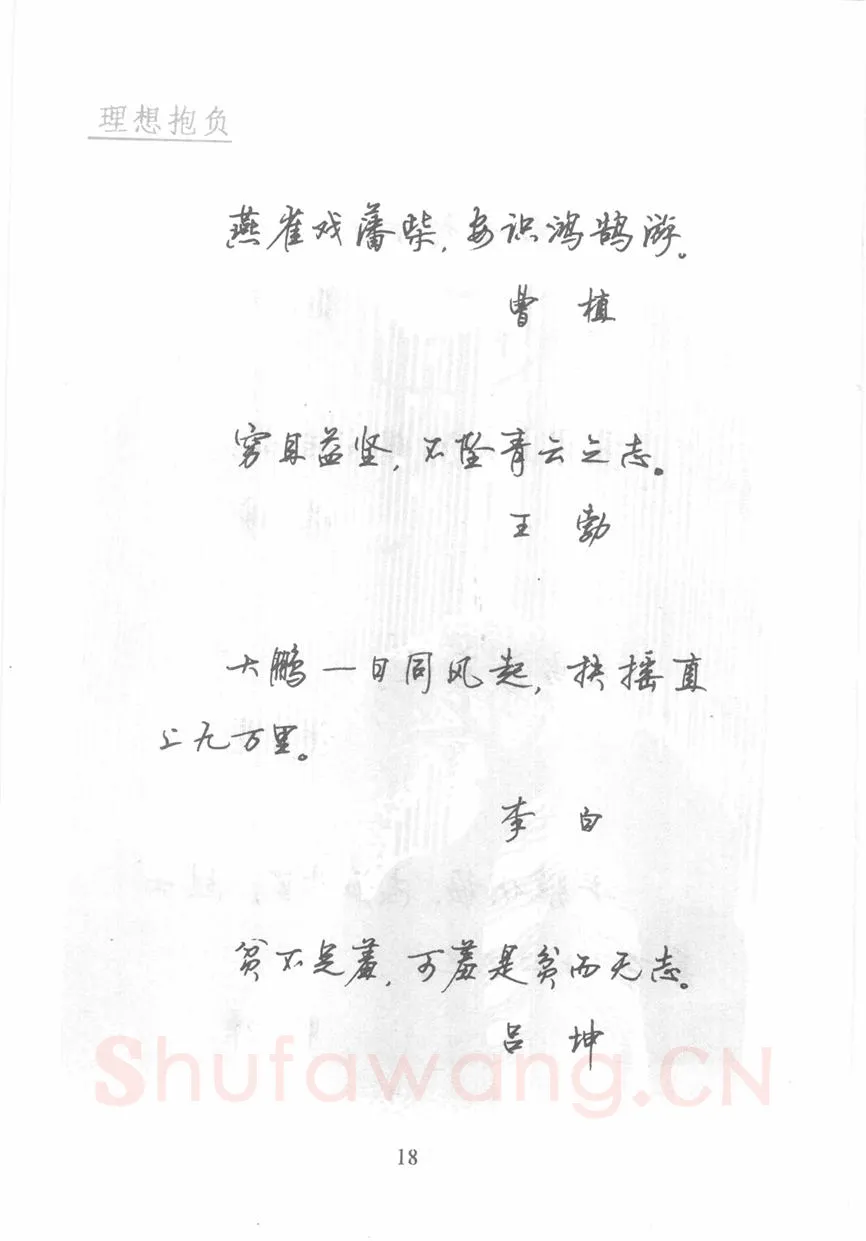 理想抱负
燕雀戏藩柴，安识鸿鹄游。
曹 植
穷且益坚，不坠青云之志。
王 勃
大鹏一日同风起，扶摇直
上九万里。
李 白
贫不足羞，可羞是贫而无志。
吕 坤
Shufawang.CN
18